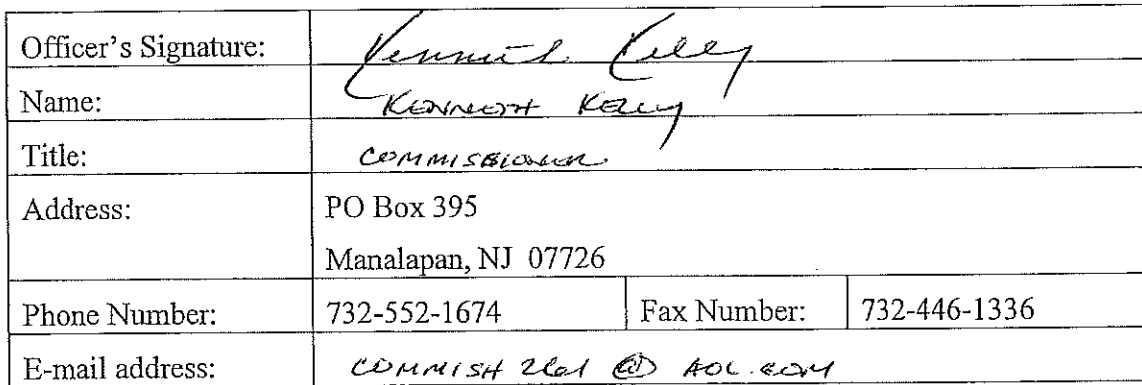 Officer's Signature: Kenneth Kelly
Name: KENNETH KELLY
Title: COMMISSIONER
Address: PO Box 395
Manalapan, NJ 07726
Phone Number: 732-552-1674 Fax Number: 732-446-1336
E-mail address: @ AOL.COM